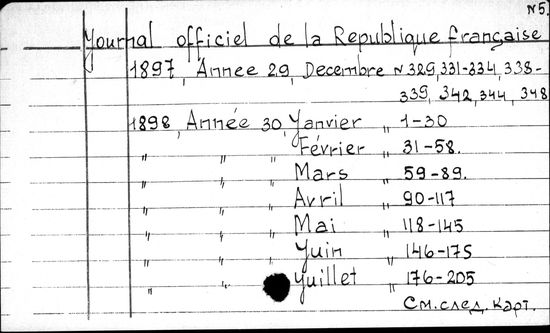 N 5
Journal officiel de la Republique française
1897, Année 29, Decembre N 329, 331-334, 338-
339, 342, 344, 348
1898, Année 30, Janvier „ 1-30
„ „ „ Février „ 31-58.
„ „ „ Mars „ 59-89.
„ „ „ Avril „ 90-117
„ „ „ Mai „ 118-145
„ „ „ Juin „ 146-175
„ „ Juillet „ 176-205
См. след. карт.